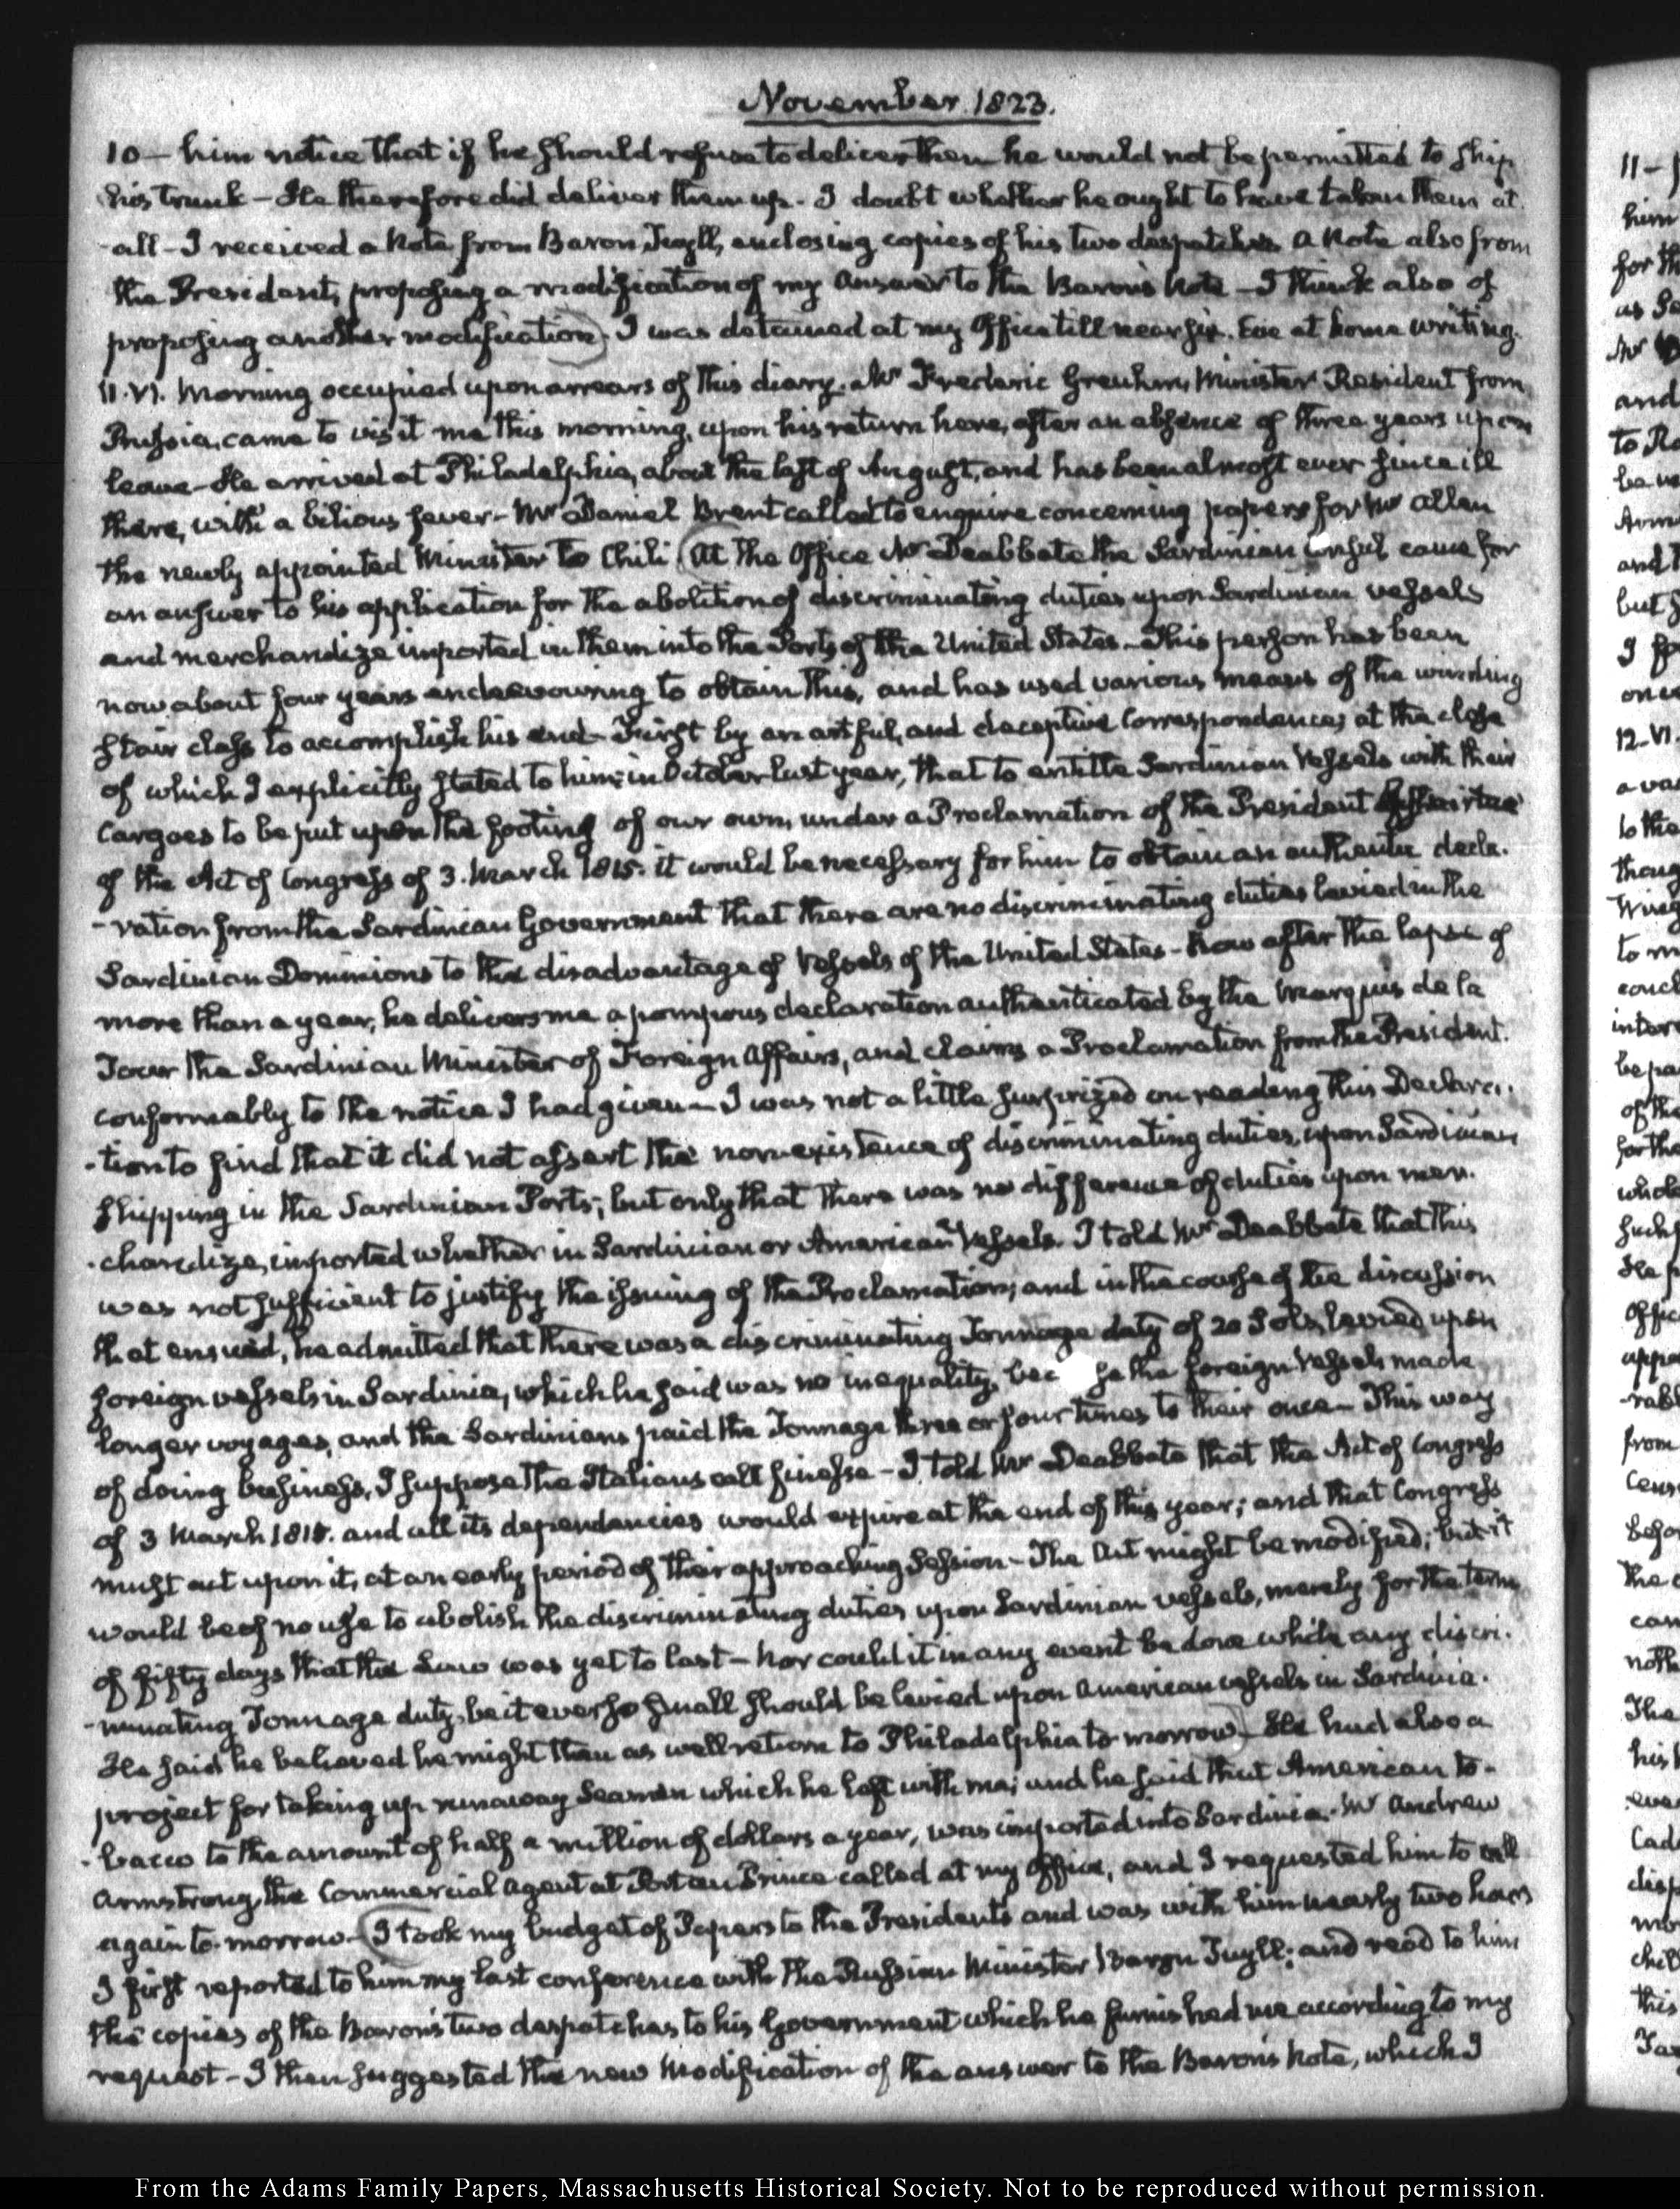 November 1823.
10 — him notice that if he should refuse to deliver them he would not be permitted to ship
his trunk — He therefore did deliver them up. I doubt whether he ought to have taken them at
all — I received a Note from Baron Tuyll, enclosing copies of his two despatches a Note also from
the President, proposing a modification of my answer to the Baron's Note — I think also of
proposing another modification. I was detained at my Office till near six. Eve at home writing.
11. VI. Morning occupied upon arrears of this diary. Mr Frederic Greuhm, Minister Resident from
Prussia, came to visit me this morning, upon his return here, after an absence of three years upon
leave — He arrived at Philadelphia, about the last of August, and has been almost ever since ill
there, with a bilious fever — Mr Daniel Brent called to enquire concerning papers for Mr Allen
the newly appointed Minister to Chili (At the Office Mr Deabbate the Sardinian Consul came for
an answer to his application for the abolition of discriminating duties upon Sardinian vessels
and merchandize imported in them into the Ports of the United States — This person has been
now about four years endeavouring to obtain this, and has used various means of the winding
stair class to accomplish his end — First by an artful, and deceptive Correspondence; at the close
of which I explicitly stated to him, in October last year, that to entitle Sardinian Vessels with their
Cargoes to be put upon the footing of our own, under a Proclamation of the President
of the Act of Congress of 3. March 1815. it would be necessary for him to obtain an authentic decla-
-ration from the Sardinian Government that there are no discriminating duties levied in the
Sardinian Dominions to the disadvantage of Vessels of the United States — Now after the lapse of
more than a year, he delivers me a pompous declaration authenticated by the Marquis de la
Tour the Sardinian Minister of Foreign Affairs, and claims a Proclamation from the President.
conformably to the notice I had given — I was not a little surprized on reading this Declara-
-tion to find that it did not assert the non-existence of discriminating duties, upon Sardinian
shipping in the Sardinian Ports; but only that there was no difference of duties upon mer-
-chandize, imported whether in Sardinian or American Vessels. I told Mr Deabbate that this
was not sufficient to justify the issuing of the Proclamation; and in the course of the discussion
that ensued, he admitted that there was a discriminating Tonnage duty of 20 Sols, levied upon
foreign vessels in Sardinia, which he said was no inequality, bec se the foreign Vessels made
longer voyages, and the Sardinians paid the Tonnage three or four times to their once — This way
of doing business, I suppose the Italians call finesse — I told Mr Deabbate that the Act of Congress
of 3 March 1815. and all its dependancies would expire at the end of this year; and that Congress
must act upon it, at an early period of their approaching Session — The Act might be modified; but it
would be of no use to abolish the discriminating duties upon Sardinian vessels, merely for the term
of fifty days that the Law was yet to last — nor could it in any event be done while any discri-
-minating Tonnage duty, be it ever so small should be levied upon American vessels in Sardinia.
He said he believed he might then as well return to Philadelphia to-morrow) — He had also a
project for taking up runaway Seamen which he left with me; and he said that American to-
-bacco to the amount of half a million of dollars a year, was imported into Sardinia. Mr Andrew
Armstrong, the Commercial Agent at Port au Prince called at my Office, and I requested him to call
again to-morrow — (I took my budget of Papers to the President's and was with him nearly two hours
I first reported to him my last conference with the Russian Minister Baron Tuyll; and read to him
the copies of the Baron's two despatches to his Government which he furnished me according to my
request — I then suggested the new Modification of the answer to the Baron's Note, which I
11 —
him
for th
as
Mr
and
to
be
and
but
I
on
12. VI.
a
to the
thoug
to
be pa
of the
for the
Offic
appo
from
befo
The
can
The
his
this
From the Adams Family Papers, Massachusetts Historical Society. Not to be reproduced without permission.